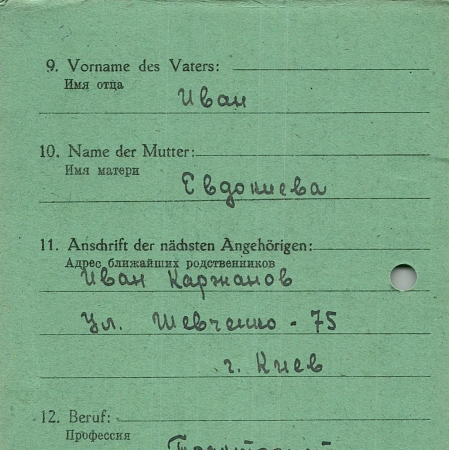 9. Vorname des Vaters:
Имя отца
Иван
10. Name der Mutter:
Имя матери
Евдокиева
11. Anschrift der nächsten Angehörigen:
Адрес ближайших родственников
Иван Каржанов
Ул. Шевченко - 75
г. Киев
12. Beruf:
Профессия